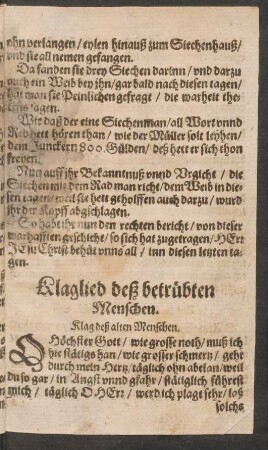 ohn verlangen / eylen hinauß zum Siechenhauß /
vnd sie all nemen gefangen.
Da fanden sie drey Siechen darinn / vnd darzu
auch ein Weib bey jhn / gar bald nach diesen tagen /
hat man sie Peinlichen gefragt / die warheit the-
sagen.
Wie daß der eine Siechenman / all Wort vnnd
Red hett hören than / wie der Müller solt leyhen /
dem Junckern 800. Gülden / deß hett er sich thon
frewen.
Nun auff jhr Bekanntnuß vnnd Vrgicht / die
Siechen mit dem Rad man richt / dem Weib in die-
sen tagen / weil sie hett geholffen auch darzu / wurd
jhr der Kopff abgschlagen.
So habt jhr nun den rechten bericht / von dieser
warhafften geschicht / so sich hat zugetragen / HErr
JEsu Christ behüt vnns all / inn diesen letzten ta-
gen.
Klaglied deß betrübten
Menschen.
Klag deß alten Menschen.
O Höchster Gott / wie grosse noth / muß ich
hie stätigs han / wie grosser schmertz / geht
durch mein Hertz / täglich ohn abelan / weil
du so gar / in Angst vnnd gfahr / stätiglich führest
mich / täglich O HErr / werd ich plagt sehr / laß
solchs